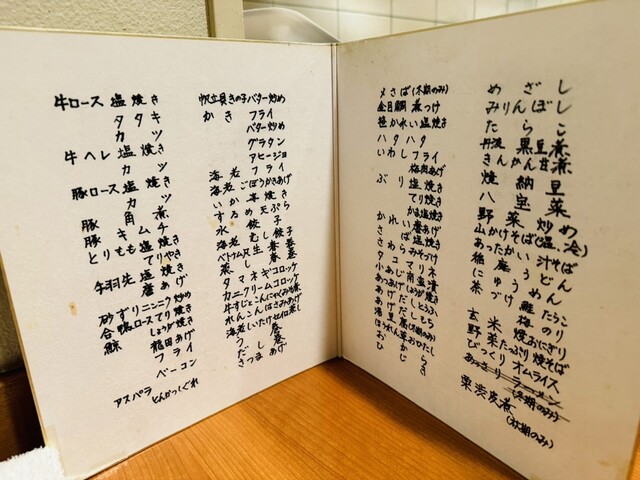 牛ロース 塩焼き
タタキ
カツ
牛ヘレ 塩焼き
カツ
豚ロース 塩焼き
カツ
豚角煮
豚キムチ
とりもも 塩焼き
てりやき
手羽先 塩焼き
唐あげ
砂ずりニンニク炒め
合鴨ロース てり焼き
鯨 しょうが焼き
竜田あげ
フライ
ベーコン
アスパラ とんかつしぐれ
帆立貝きの子バター炒め
かき フライ
バター炒め
グラタン
アヒージョ
海老 フライ
海老 ごぼうかきあげ
いか 一本焼き
するめ 天ぷら
水餃子
海老むし餃子
ベトナム風生春巻
蒸し春巻
タマネギコロッケ
カニクリームコロッケ
牛すじとこんにゃくみそ煮
れんこんはさみあげ
海老しいたけせいろ蒸し
う巻
だし巻
さつまあげ
〆さば(冬期のみ)
金目鯛 煮つけ
笹かれい 塩焼き
ハタハタ
いわし フライ
梅肉あげ
ぶり 塩焼き
てり焼き
かま塩焼き
かれい 唐あげ
さば 塩焼き
さわら みそづけ
タコマリネ
小あじ南蛮漬
あつあげしょうが焼き
あげだしとうふ
あげだしもち
湯豆腐
ほうれん草おひたし
おから
ひじき
めざし
みりんぼし
たらこ
丹波黒豆煮
きんかん甘煮
焼納豆
八宝菜
野菜炒め
山かけそば(温、冷)
あったかい汁そば
稲庭うどん
にゅうめん
茶づけ 鮭 たらこ
梅 のり
玄米焼おにぎり
野菜たっぷり焼そば
びっくりオムライス
あっさりラーメン
(冬期のみ)
栗渋皮煮
(秋期のみ)